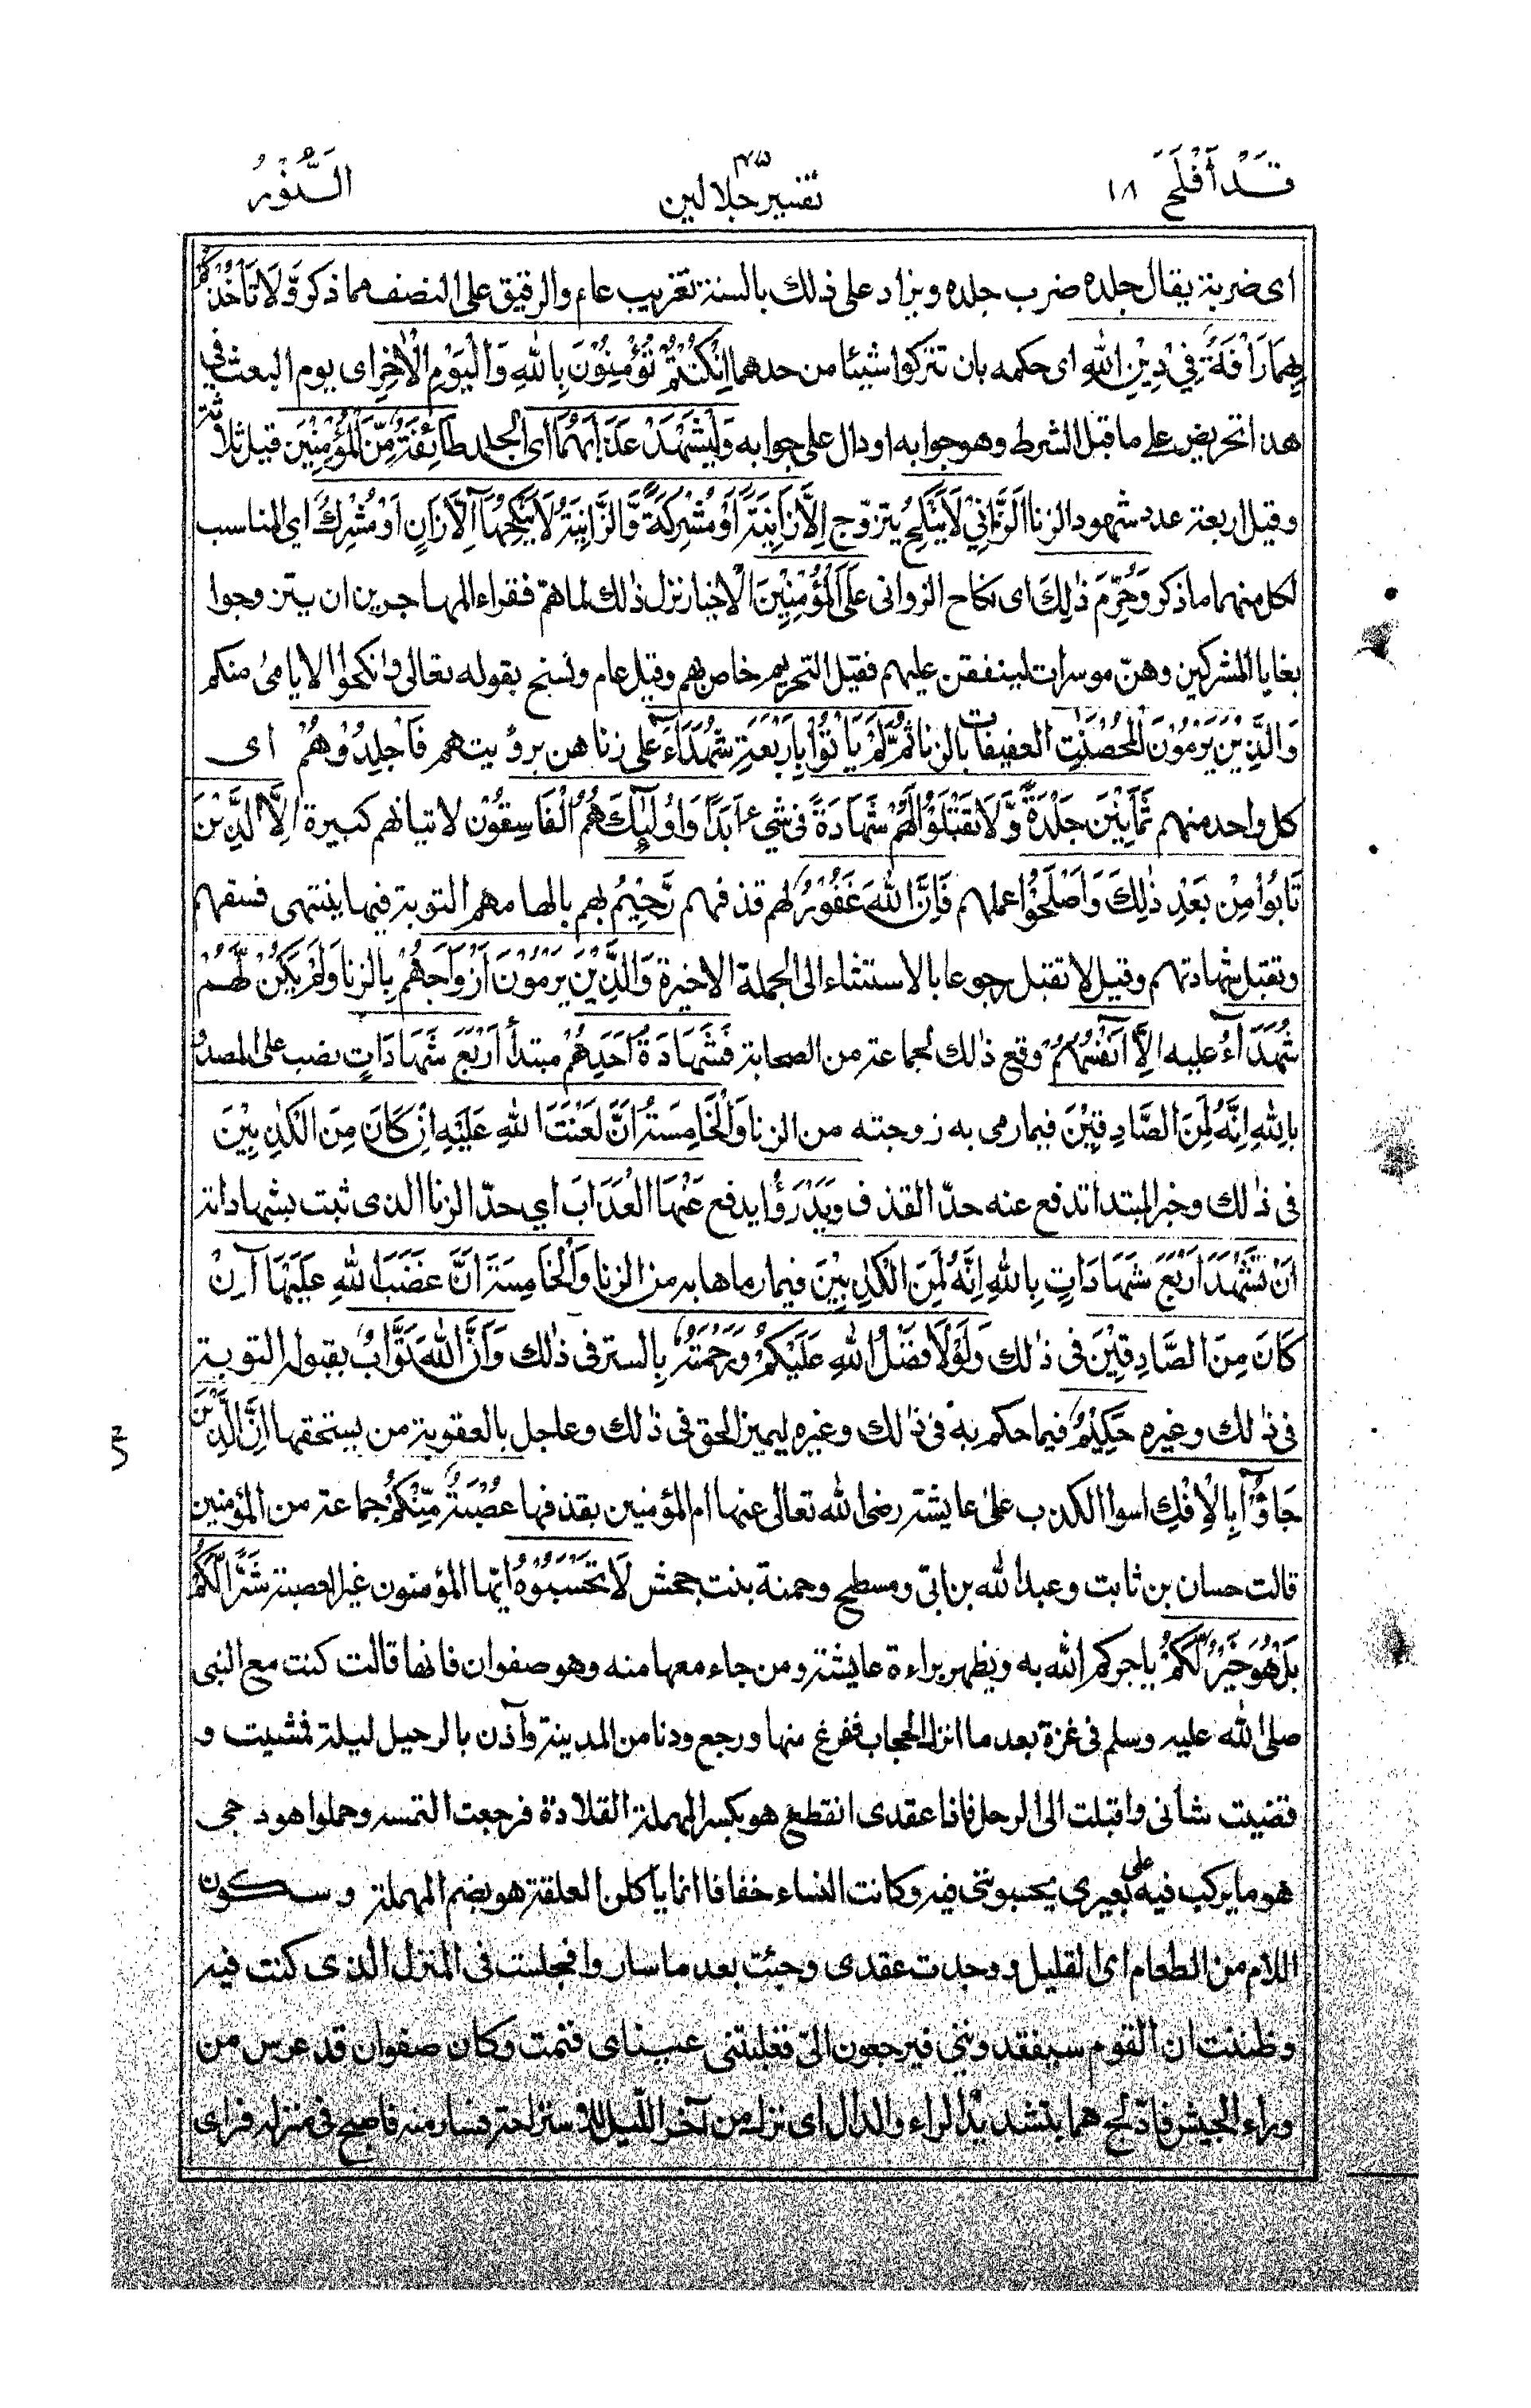 قَدْ أَفْلَحَ ١٨
تفسير جلالين
النُّوْرُ
اى ضربة يقال جلده ضرب جلده ويزاد على ذلك بالسنة تغريب عام والرقيق على النصف مما ذكر وَّلَا تَأْخُذْكُمْ
بِهِمَا رَأْفَةٌ فِيْ دِيْنِ اللهِ اى حكمه بان تتركوا شيئا من حدهما اِنْ كُنْتُمْ تُؤْمِنُوْنَ بِاللهِ وَالْيَوْمِ الْاٰخِرِ اى يوم البعث في
هذا تحريض على ما قبل الشرط وهو جوابه او دال على جوابه وَلْيَشْهَدْ عَذَابَهُمَا اى الجلد طَآئِفَةٌ مِّنَ الْمُؤْمِنِيْنَ قيل ثلاثة
وقيل اربعة عدد شهود الزنا اَلزَّانِيْ لَا يَنْكِحُ يتزوّج اِلَّا زَانِيَةً اَوْ مُشْرِكَةً وَّالزَّانِيَةُ لَا يَنْكِحُهَآ اِلَّا زَانٍ اَوْ مُشْرِكٌ اى المناسب
لكل منهما ما ذكر وَحُرِّمَ ذٰلِكَ اى نكاح الزوانى عَلَى الْمُؤْمِنِيْنَ الاخيار نزل ذٰلك لما همّ فقراء المهاجرين ان يتزوجوا
بغايا المشركين وهنّ موسرات لينفقن عليهم فقيل التحريم خاص بهم وقيل عام ونسخ بقوله تعالى وانكحوا الايامى منكم
وَالَّذِيْنَ يَرْمُوْنَ الْمُحْصَنٰتِ العفيفات بالزنا ثُمَّ لَمْ يَاْتُوْا بِاَرْبَعَةِ شُهَدَآءَ على زنا هن برؤيتهم فَاجْلِدُوْهُمْ اى
كل واحد منهم ثَمٰنِيْنَ جَلْدَةً وَّلَا تَقْبَلُوْا لَهُمْ شَهَادَةً فى شىء اَبَدًا وَاُولٰٓئِكَ هُمُ الْفَاسِقُوْنَ لاتيانهم كبيرة اِلَّا الَّذِيْنَ
تَابُوْا مِنْ بَعْدِ ذٰلِكَ وَاَصْلَحُوْا عملهم فَاِنَّ اللهَ غَفُوْرٌ لهم قذفهم رَّحِيْمٌ بهم بالهامهم التوبة فبها ينتهى فسقهم
وتقبل شهادتهم وقيل لا تقبل رجوعا بالاستثناء الى الجملة الاخيرة وَالَّذِيْنَ يَرْمُوْنَ اَزْوَاجَهُمْ بالزنا وَلَمْ يَكُنْ لَّهُمْ
شُهَدَآءُ عليه اِلَّآ اَنْفُسُهُمْ وقع ذٰلك لجماعة من الصحابة فَشَهَادَةُ اَحَدِهِمْ مبتدأ اَرْبَعَ شَهَادَاتٍ نصب على المصدر
بِاللهِ اِنَّهٗ لَمِنَ الصَّادِقِيْنَ فيما رمى به زوجته من الزنا وَالْخَامِسَةُ اَنَّ لَعْنَتَ اللهِ عَلَيْهِ اِنْ كَانَ مِنَ الْكٰذِبِيْنَ
فى ذٰلك وخبر المبتدا تدفع عنه حدّ القذف وَيَدْرَؤُا يدفع عَنْهَا الْعَذَابَ اى حدّ الزنا الذى ثبت بشهاداته
اَنْ تَشْهَدَ اَرْبَعَ شَهَادَاتٍ بِاللهِ اِنَّهٗ لَمِنَ الْكٰذِبِيْنَ فيما رماها به من الزنا وَالْخَامِسَةَ اَنَّ غَضَبَ اللهِ عَلَيْهَآ اِنْ
كَانَ مِنَ الصَّادِقِيْنَ فى ذٰلك وَلَوْلَا فَضْلُ اللهِ عَلَيْكُمْ وَرَحْمَتُهٗ بالستر فى ذٰلك وَاَنَّ اللهَ تَوَّابٌ بقبوله التوبة
فى ذٰلك وغيره حَكِيْمٌ فيما حكم به فى ذٰلك وغيره ليميز الحق فى ذٰلك وعاجل بالعقوبة من يستحقها اِنَّ الَّذِيْنَ
جَآؤُا بِالْاِفْكِ اسوا الكذب على عايشة رضى الله تعالى عنها ام المؤمنين بقذفها عُصْبَةٌ مِّنْكُمْ جماعة من المؤمنين
قالت حسان بن ثابت وعبد الله بن ابى ومسطح وحمنة بنت جحش لَا تَحْسَبُوْهُ ايها المؤمنون غير العصبة شَرًّا لَّكُمْ
بَلْ هُوَ خَيْرٌ لَّكُمْ ياجركم الله به ويظهر براءة عايشة ومن جاء معها منه وهو صفوان فانها قالت كنت مع النبى
صلى الله عليه وسلم فى غزوة بعد ما انزل الحجاب ففرغ منها ورجع ودنا من المدينة وآذن بالرحيل ليلة فمشيت و
قضيت شأنى واقبلت الى الرحل فاذا عقدى انقطع هو بكسر المهملة القلادة فرجعت التمسه وحملوا هودجى
هو ما يركب فيه على بعيرى يحسبوننى فيه وكانت النساء خفافا انما ياكلن العلقة هو بضم المهملة وسكون
اللام من الطعام اى القليل ووجدت عقدى وجئت بعد ما ساروا فجلست فى المنزل الذى كنت فيه
وظننت ان القوم سيفقدوننى فيرجعون الىّ فغلبتنى عيناى فنمت وكان صفوان قد عرس من
وراء الجيش فادّلج هما بتشديد الراء والدال اى نزل من آخر الليل للاستراحة فسار منه فاصبح فى منزله فراى